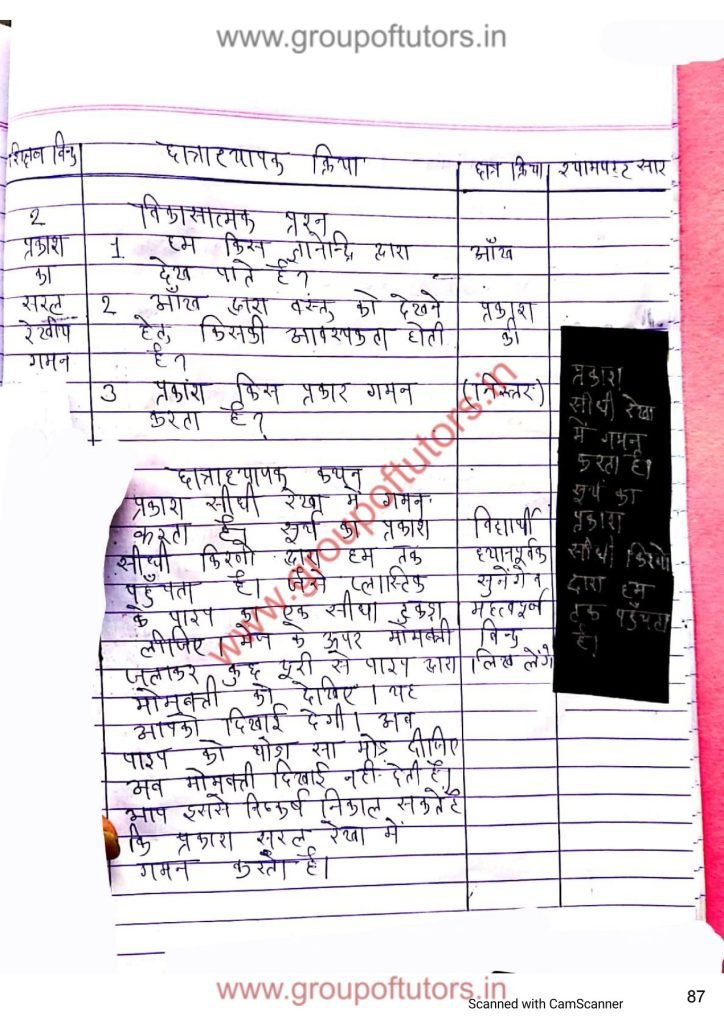 www.groupoftutors.in
शिक्षण बिन्दु छात्राध्यापक क्रिया छात्र क्रिया श्यामपट्ट सार
2 विकासात्मक प्रश्न
प्रकाश 1 हम किस ज्ञानेन्द्रि द्वारा आँख
का देख पाते है?
सरल 2 आँख द्वारा वस्तु को देखने प्रकाश
रेखीय हेतु किसकी आवश्यकता होती की
गमन है?
3 प्रकाश किस प्रकार गमन (निरुत्तर)
करता है?
छात्राध्यापक कथन
प्रकाश सीधी रेखा में गमन
करता है सूर्य का प्रकाश विद्यार्थी
सीधी किरणो द्वारा हम तक ध्यानपूर्वक
पहुँचता है। जैसे प्लास्टिक सुनेंगे व
के पाइप का एक सीधा टुकडा महत्वपूर्ण
लीजिए। मेज के ऊपर मोमबत्ती बिन्दु
जलाकर कुछ दूरी से पाइप द्वारा लिख लेंगे
मोमबत्ती को देखिए। यह
आपको दिखाई देगी। अब
पाइप को थोडा सा मोड़ दीजिए
अब मोमबत्ती दिखाई नही देती है।
आप इससे निष्कर्ष निकाल सकते है
कि प्रकाश सरल रेखा में
गमन करता है।
प्रकाश
सीधी रेखा
में गमन
करता है।
सूर्य का
प्रकाश
सीधी किरणो
द्वारा हम
तक पहुँचता
है।
www.groupoftutors.in
www.groupoftutors.in
Scanned with CamScanner
87